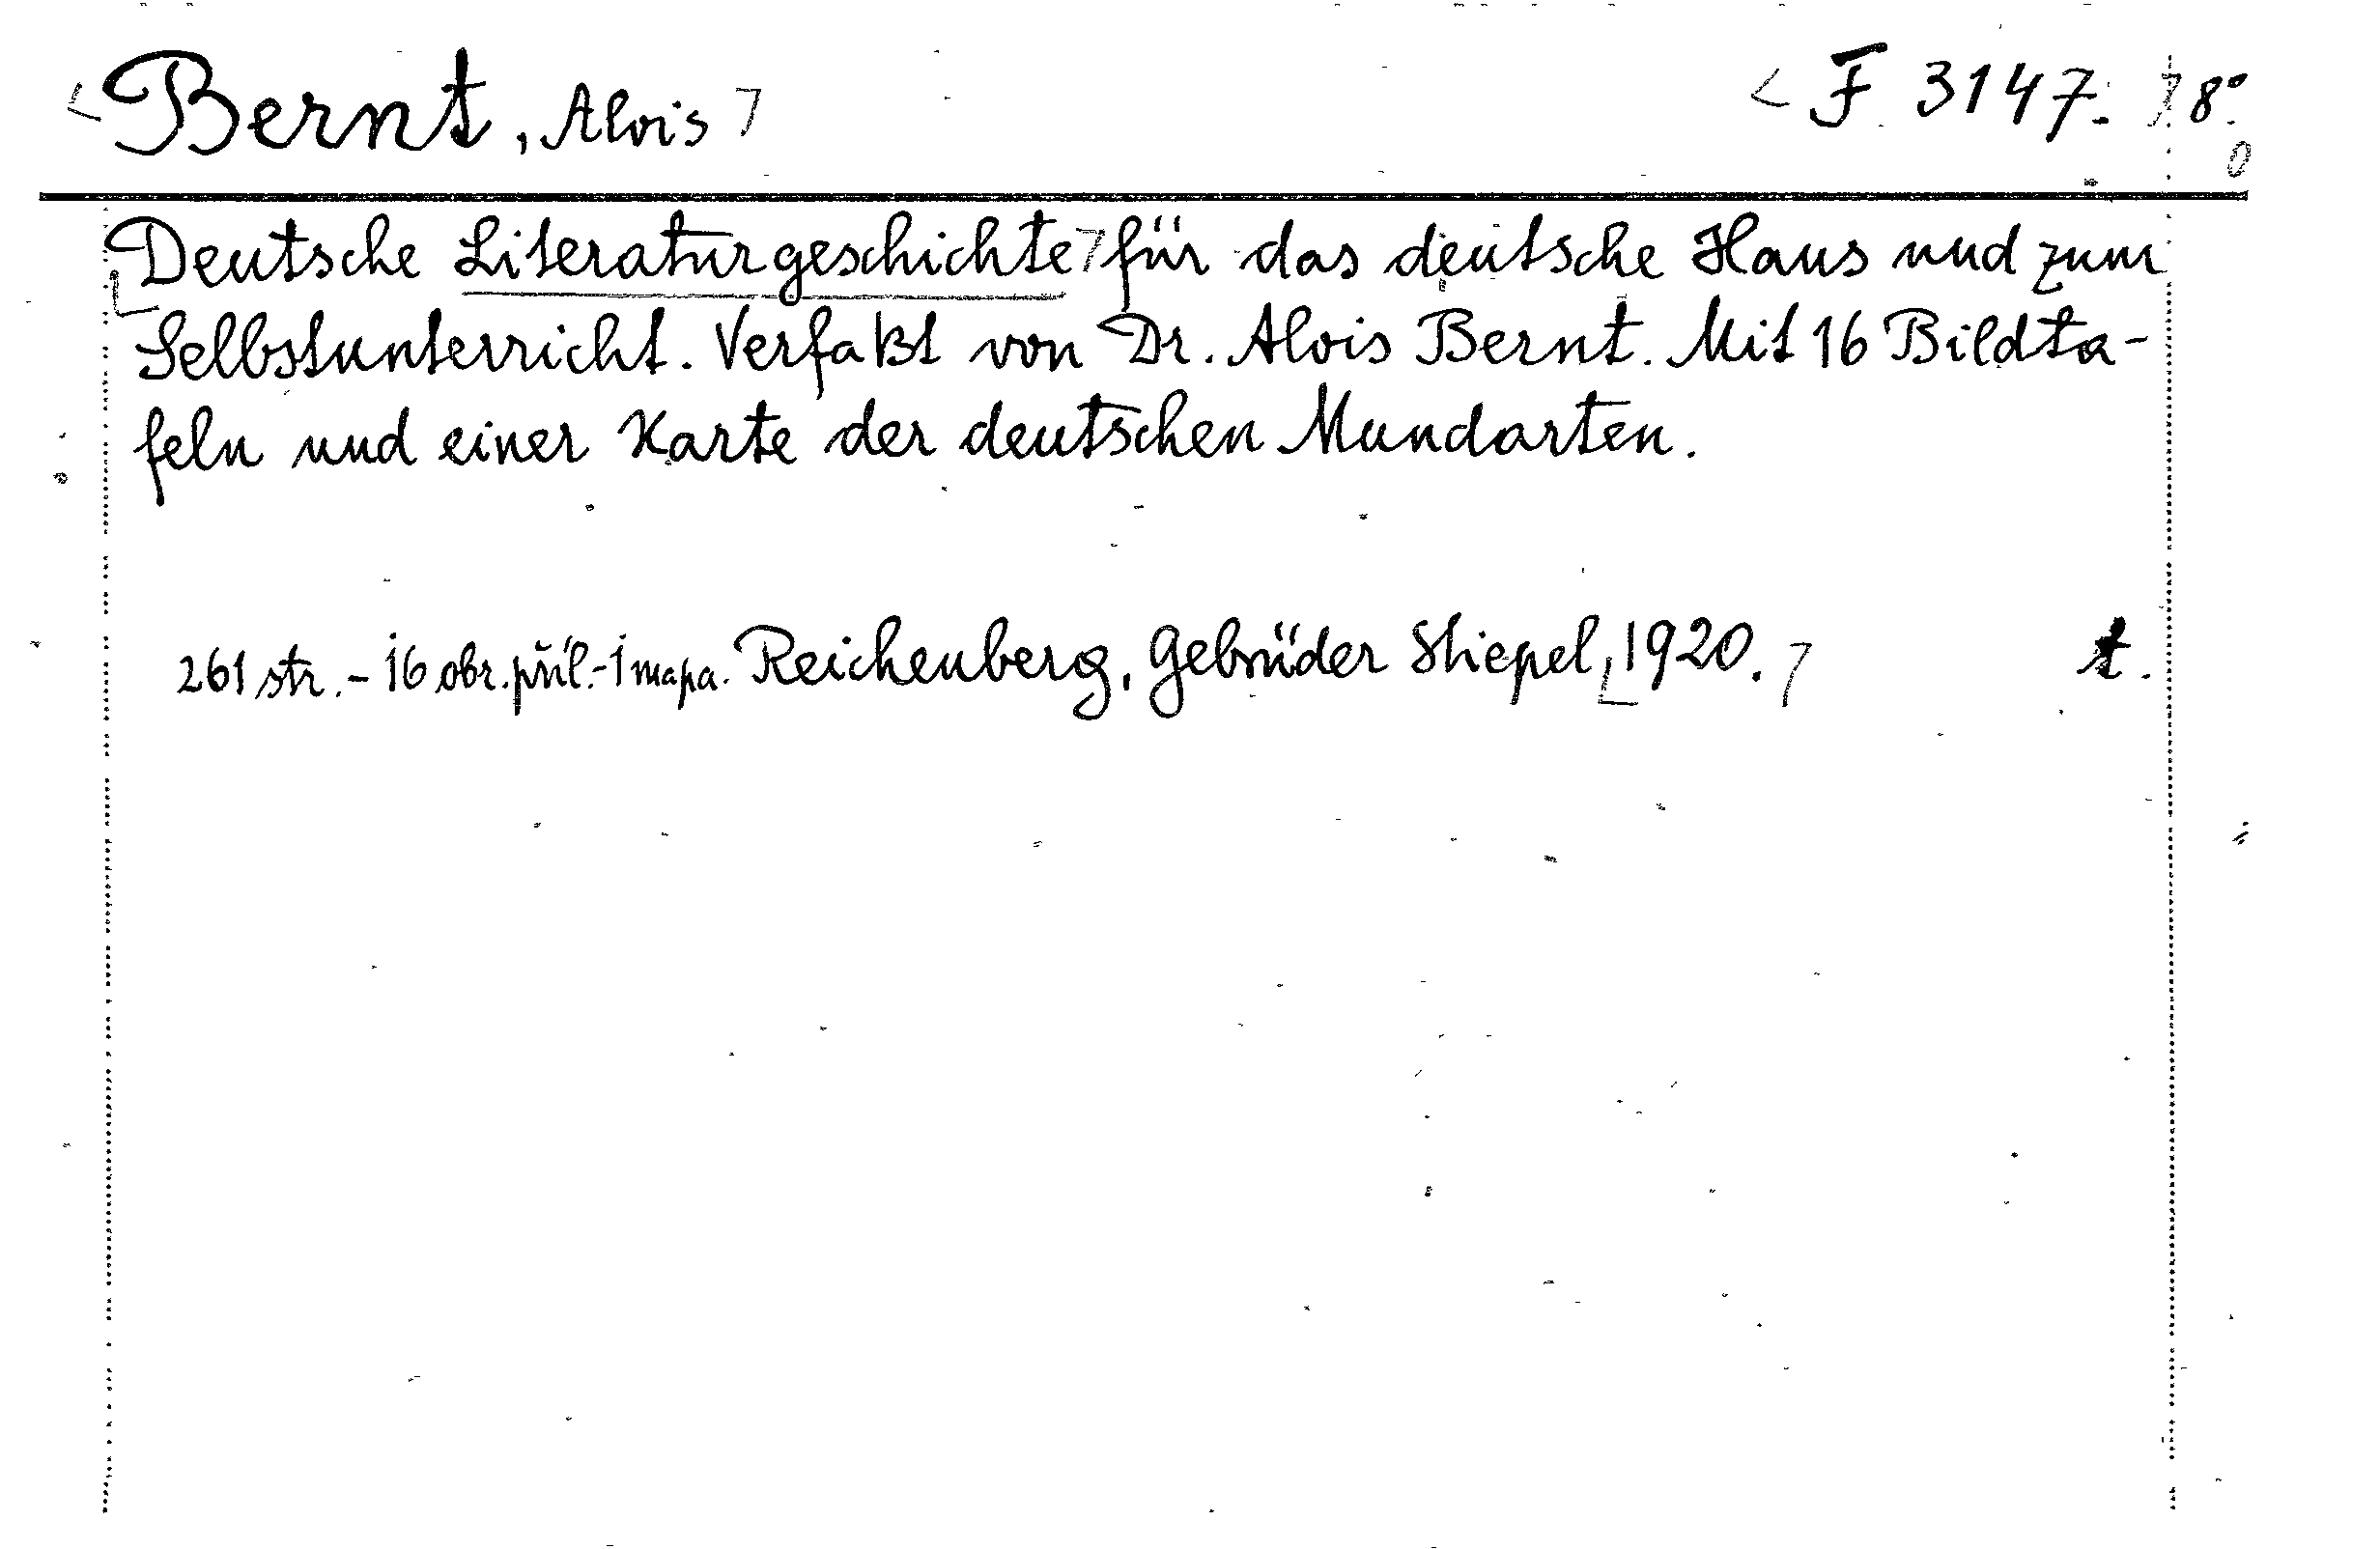 Bernt, Alois F 3147. 8°
Deutsche Literaturgeschichte für das deutsche Haus und zum
Selbstunterricht. Verfaßt von Dr. Alois Bernt. Mit 16 Bildta-
feln und einer Karte der deutschen Mundarten.
261 str. - 16 obr. příl. - 1 mapa. Reichenberg, Gebrüder Stiepel, 1920. t.